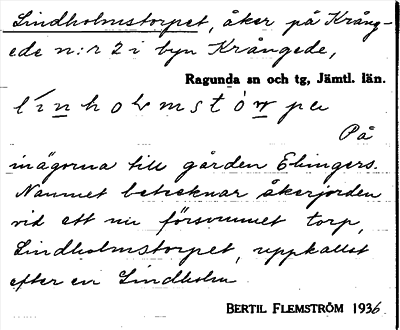 Lindholmstorpet, åker på Krång-
ede n:r 2 i byn Krångede,
Ragunda sn och tg, Jämtl. län.
På
inägorna till gården Elingers.
Namnet betecknar åkerjorden
vid ett nu försvunnet torp,
Lindholmstorpet, uppkallat
efter en Lindholm
BERTIL FLEMSTRÖM 1936.